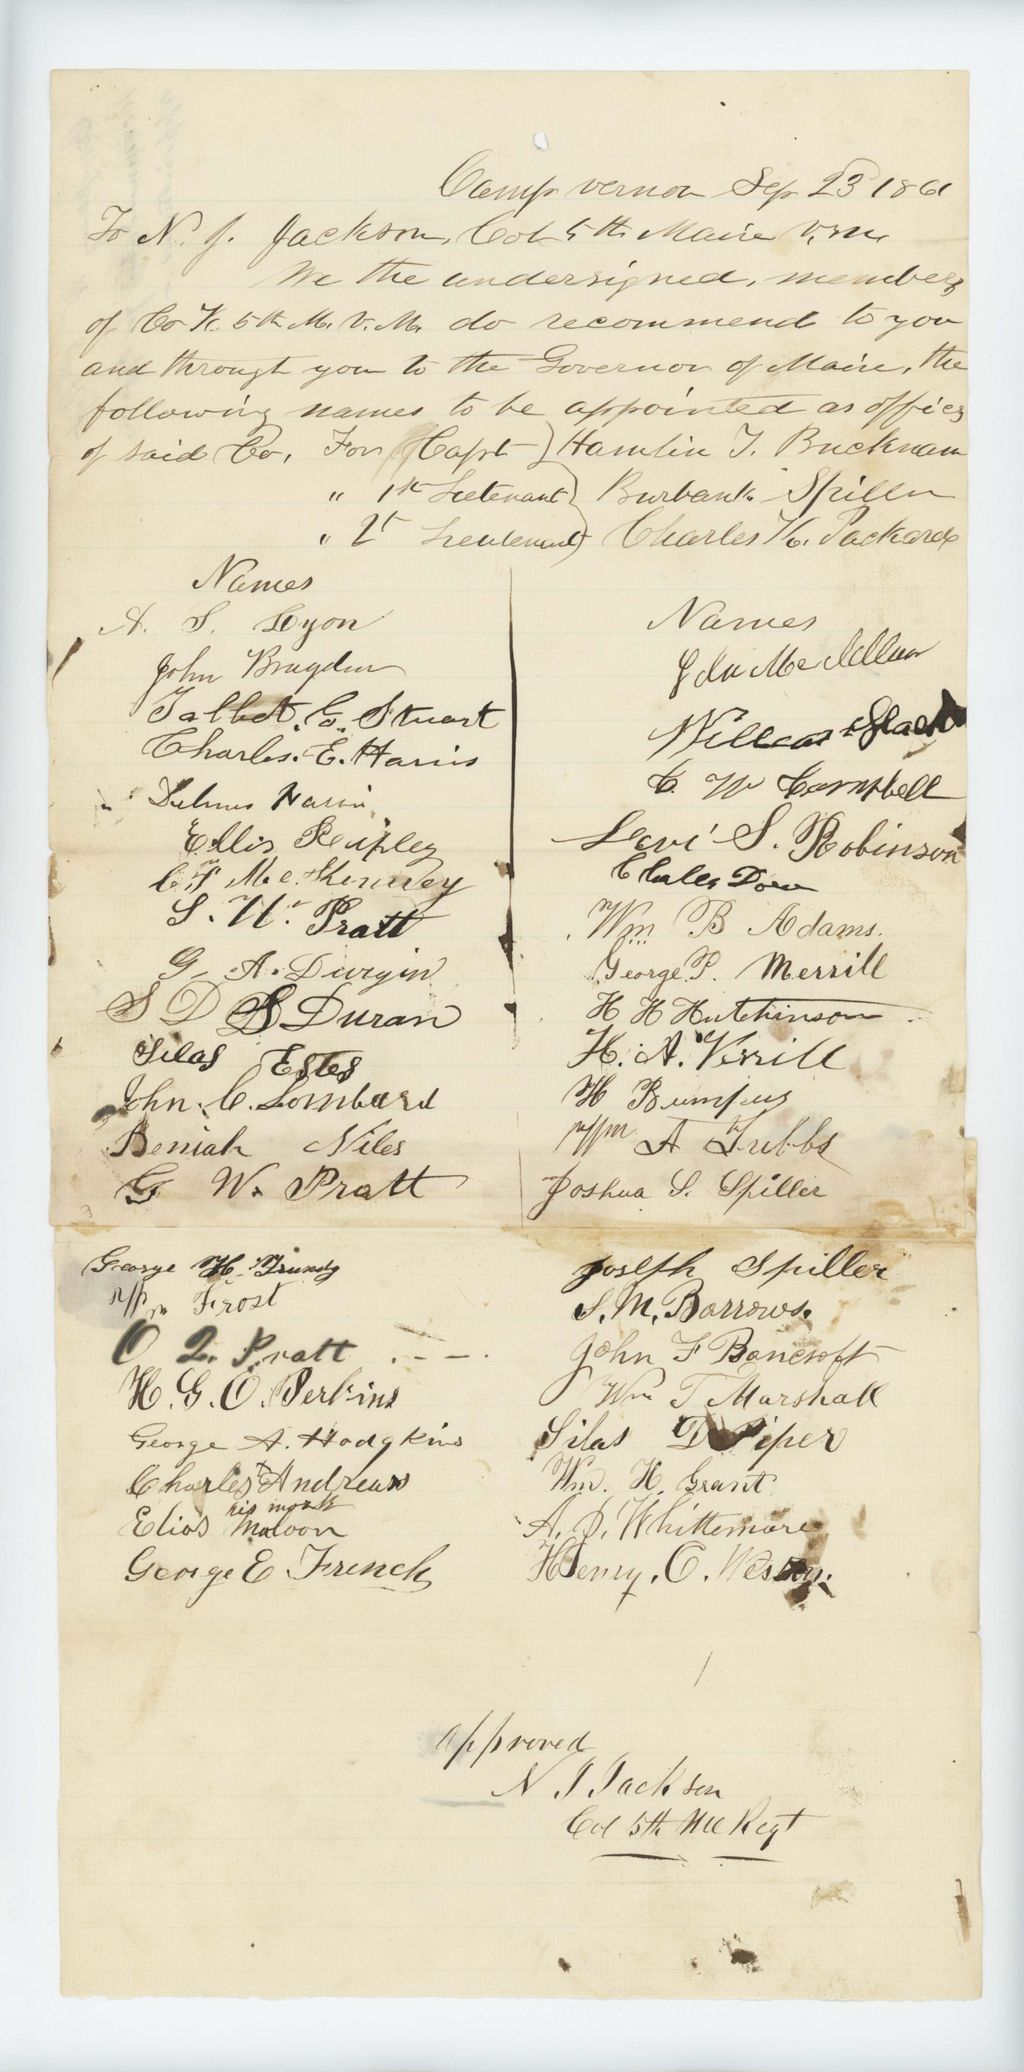 Camp vernon Sep 23 1861
To N. J. Jackson, Col 5th Maine V. M.
We the undersigned, members
of Co K. 5th M. V. M. do recommend to you
and through you to the Governor of Maine, the
following names to be appointed as offices
of said Co, For Capt } Hamlin T. Bucknam
" 1st Lietenant } Burbank Spiller
" 2t Lieutenant } Charles H. Packard
Names
A. S. Lyon
John Bragdon
Talbot. G. Stuart
Charles. E. Harris
Harris
Ellis Reipley
C. F. Mc. Kenney
S. H. Pratt
G. A. Durgin
S D S Duran
Silas Estes
John. C. Lombard
Beniah Niles
G W. Pratt
George H. Grundy
Wm Frost
O. L. Pratt
H. G. O. Perkins
George A. Hodgkins
Charles Andrews
his mark
Elias Maloon
George E French
Names
John Mc Lellan
William Slack
C. W Campbell
Levi S. Robinson
Challes Dow
Wm B Adams.
George P. Merrill
H H Hutchinson
H. A. Verrill
H Bumpus
Wm A Tubbs
Joshua S. Spiller
Joseph Spiller
S. M. Barrows.
John F Bancroft
Wm T Marshall
Silas D Piper
Wm. H. Grant
A. J. Whittemore
Henry. O. Weston.
approved
N J Jackson
Col 5th Me Regt